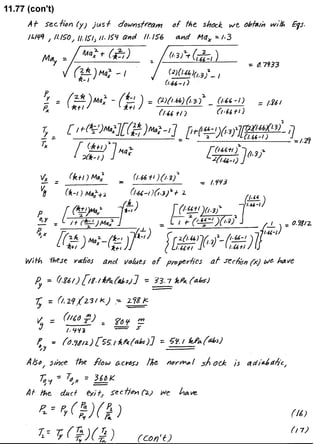 11.77 (con't)
At section (y) just downstream of the shock we obtain with Eqs.
11.149, 11.150, 11.151, 11.154 and 11.156 and Ma_x = 1.3
Ma_y = √((Ma_x² + (2/(k-1))) / ((2k/(k-1)) Ma_x² - 1)) = √(((1.3)² + (2/(1.66-1))) / ((2)(1.66)/(1.66-1) (1.3)² - 1)) = 0.7933
P_y/P_x = (2k/(k+1)) Ma_x² - ((k-1)/(k+1)) = (2)(1.66)(1.3)²/(1.66+1) - (1.66-1)/(1.66+1) = 1.861
T_y/T_x = [1+((k-1)/2)Ma_x²][(2k/(k-1))Ma_x²-1] / [(k+1)²/(2(k-1))] Ma_x² = [1+((1.66-1)/2)(1.3)²][((2)(1.66)/(1.66-1))(1.3)²-1] / [(1.66+1)²/(2(1.66-1))](1.3)² = 1.29
V_x/V_y = (k+1) Ma_x² / ((k-1) Ma_x² + 2) = (1.66+1)(1.3)² / ((1.66-1)(1.3)² + 2) = 1.443
P_0,y/P_0,x = [((k+1)/2)Ma_x² / (1+((k-1)/2)Ma_x²)]^(k/(k-1)) / [(2k/(k+1))Ma_x² - ((k-1)/(k+1))]^(1/(k-1)) = [((1.66+1)/2)(1.3)² / (1+((1.66-1)/2)(1.3)²)]^(1.66/(1.66-1)) / {[2(1.66)/(1.66+1)](1.3)² - ((1.66-1)/(1.66+1))}^(1/(1.66-1)) = 0.9812
With these ratios and values of properties at section (x) we have
P_y = (1.861)[18.1 kPa(abs)] = 33.7 kPa(abs)
T_y = (1.29)(231 K) = 298 K
V_y = (1160 m/s)/1.443 = 804 m/s
P_0,y = (0.9812)[55.1 kPa(abs)] = 54.1 kPa(abs)
Also, since the flow across the normal shock is adiabatic,
T_0,y = T_0,x = 360 K
At the duct exit, section (2) we have
P_2 = P_y (P_a/P_y)(P_2/P_a) (16)
T_2 = T_y (T_a/T_y)(T_2/T_a) (17)
(con't)